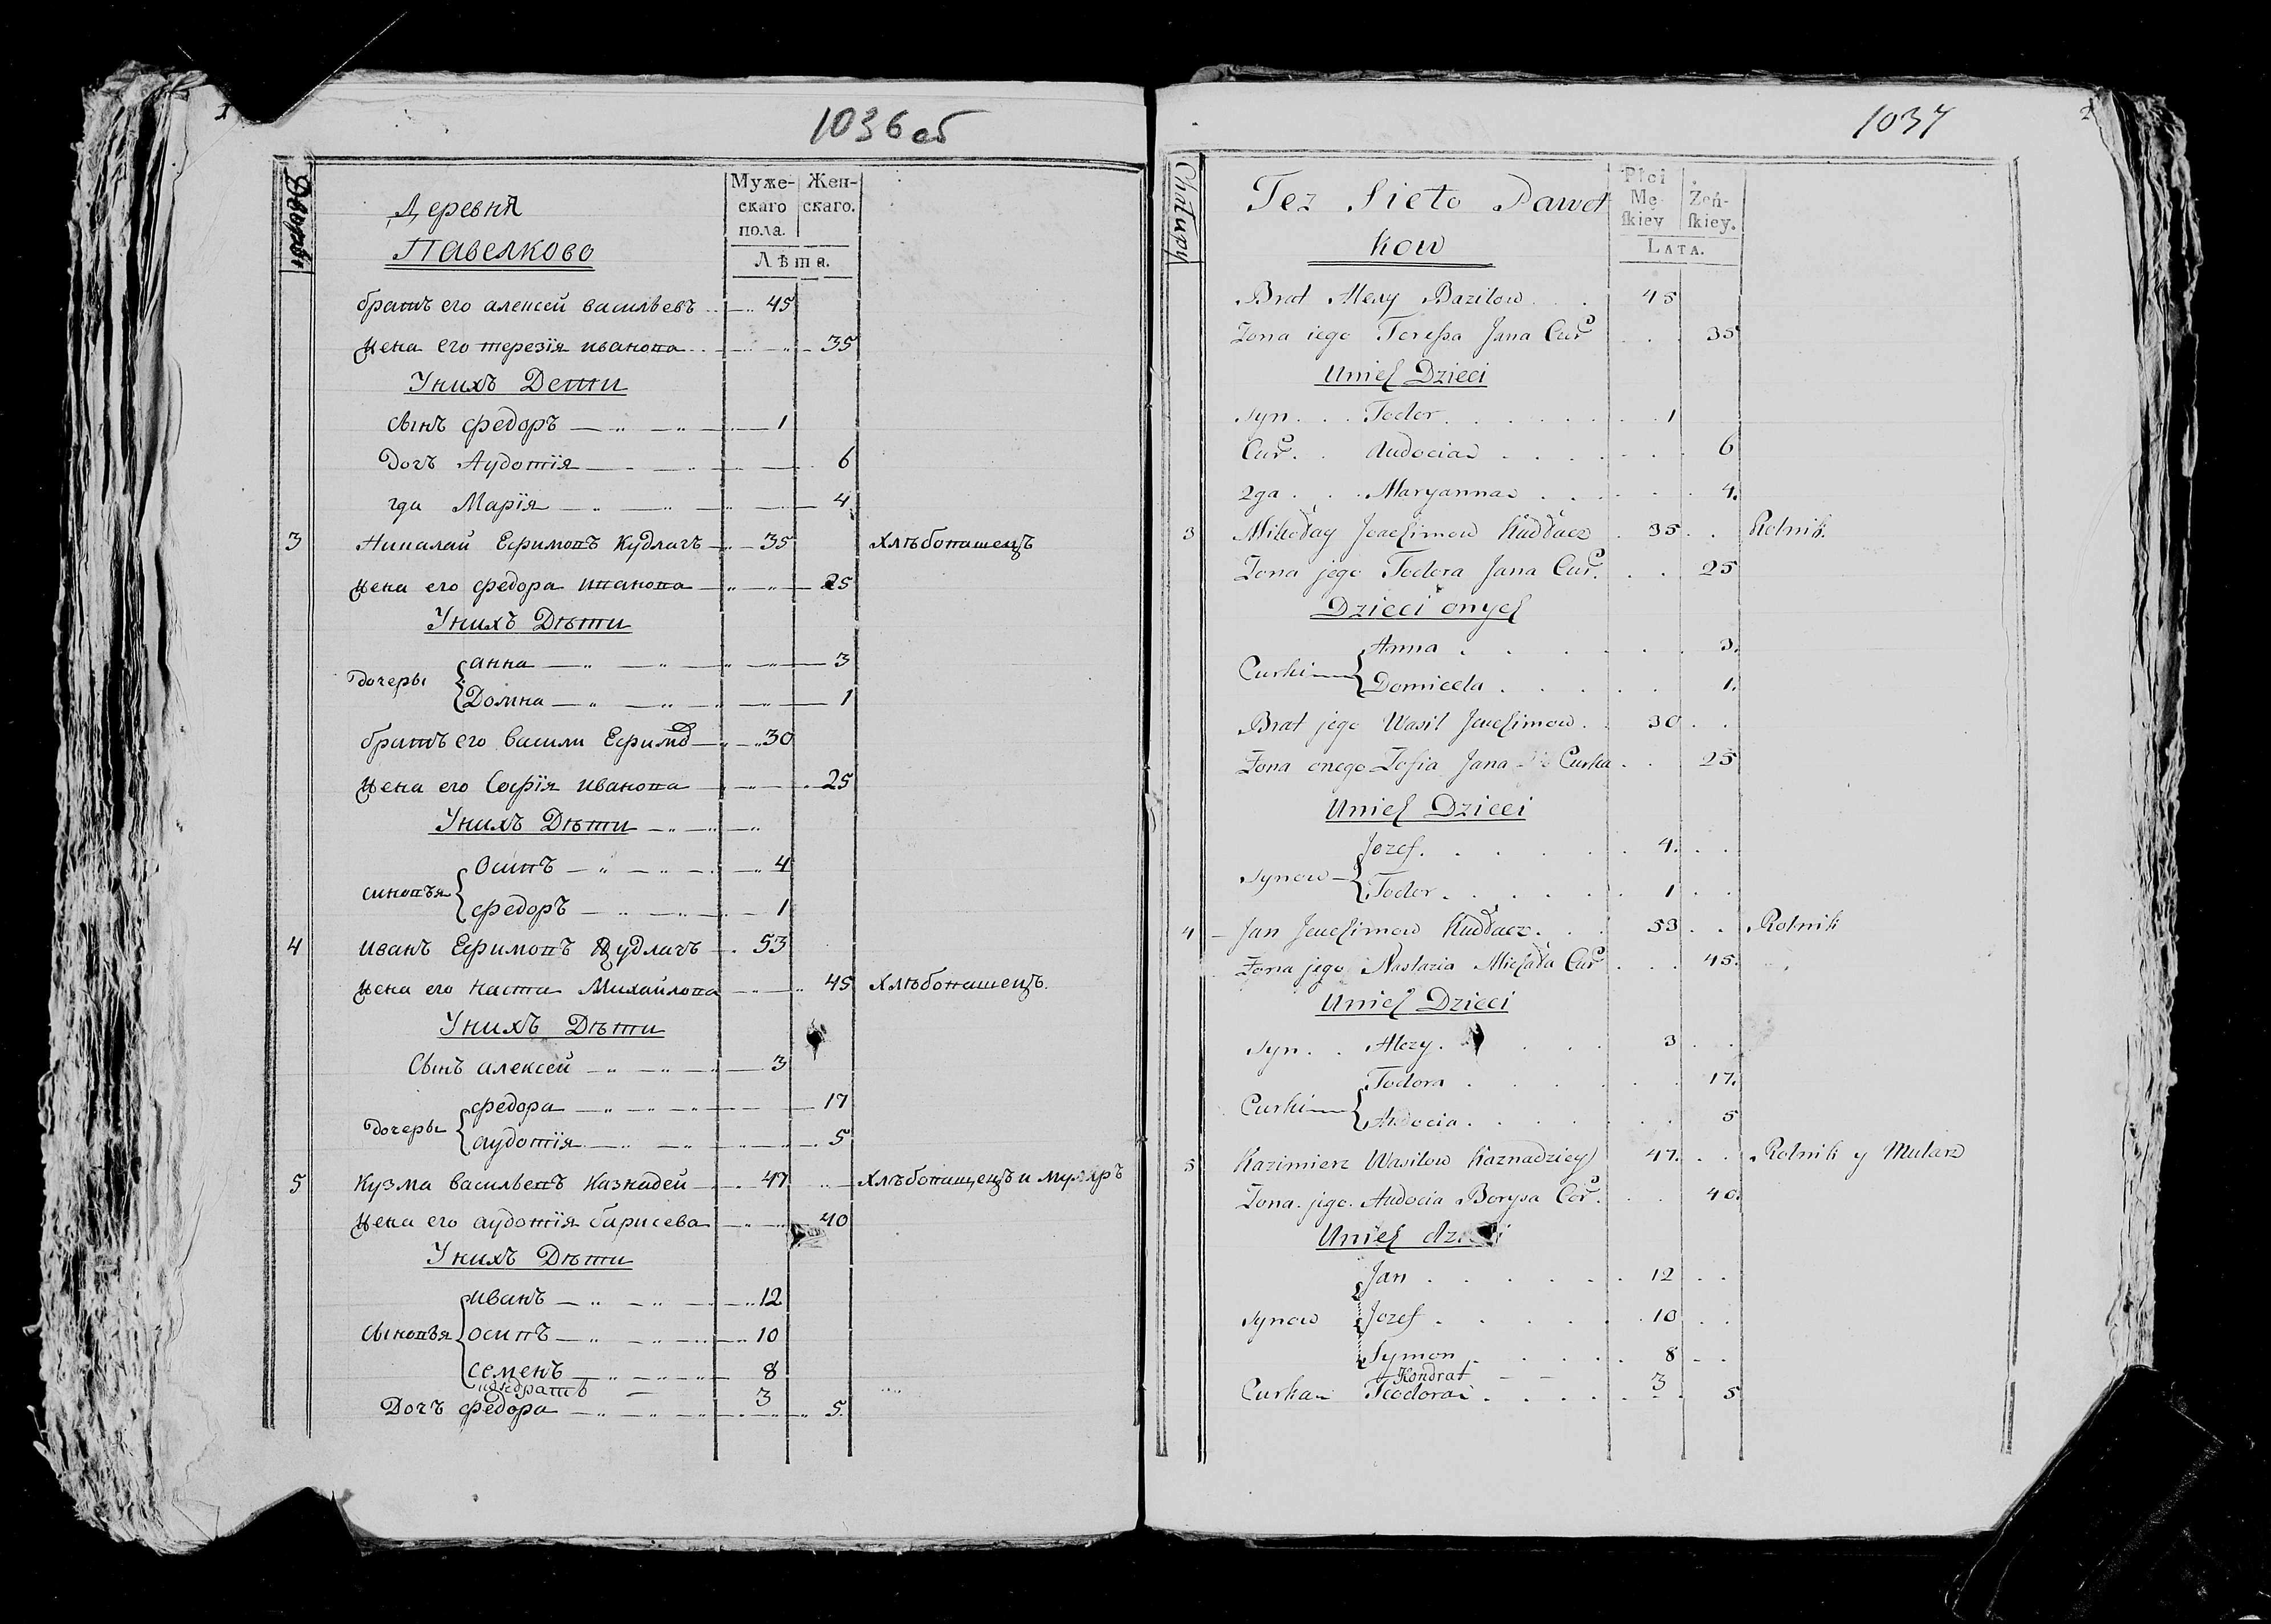 1036 об
Дворовъ
Муже-
скаго
пола.
Жен-
скаго.
Лѣта.
Деревня
Павелково
братъ его алексей васильевъ 45
жена его терезія иванова 35
У нихъ Дети
сынъ федоръ 1
Дочъ Аудотія 6
2да Марія 4
3 Николай Ефимовъ Кудлачъ 35 Хлѣбопашецъ
жена его федора иванова 25
У нихъ Дѣти
Дочеры
анна 3
Домна 1
братъ его васили Ефимов 30
жена его Софія иванова 25
У нихъ Дѣти
синовъя
Осипъ 4
федоръ 1
4 иванъ Ефимовъ Кудлачъ 53
жена его наста Михайлова 45 Хлѣбопашецъ.
У нихъ Дѣти
Сынъ алексей 3
Дочеры
федора 17
аудотія 5
5 Кузма васильевъ Казнадей 47 Хлѣбопашецъ и муляръ
жена его аудотія барисева 40
У нихъ Дѣти
Сыновъя
иванъ 12
осипъ 10
семенъ 8
3
Дочъ федора 5.
1037
Chałupy
Płci
Mę-
skiey
Żeń-
skiey.
LATA.
Tez Sieło Pawoł
kow
Brat Alexy Bazilow 45
Zona iego Teressa Jana Cur 35
Unich Dzieci
syn Teodor 1
Cur. Audocia 6
2ga Maryanna 4.
3 Mikołay Jeuchimow Kudłacz 35 Rolnik.
Zona jego Todora Jana Cur. 25
Dzieci onych
Curki
Anna 3.
Domicela 1.
Brat jego Wasil Jeuchimow 30
Zona onego Zofia Jana Curka 25
Unich Dzieci
synow
Jozef. 4.
Todor 1
4 Jan Jeuchimow Kudłacz 53 Rolnik
Zona jego Nastazia Michała Cur 45.
Unich Dzieci
syn Alexy 3
Curki
Todora 17.
Audocia 5
5 Kazimierz Wasilow Kaznadziey 47. Rolnik y Mularz
Zona jego Audocia Borysa Cor. 40.
Unich dzieci
synow
Jan 12
Jozef 10
Symon 8
Kondrat 3
Curka Teodora 5